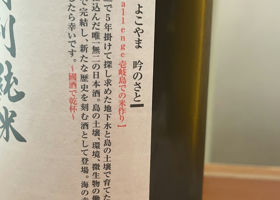 よこやま 吟のさと
allenge壱岐島での米作り】
で5年掛けて探し求めた地下水と島の土壌で育てた
込んだ唯一無二の日本酒。島の土壌、環境、微生物の働
で完結し、新たな歴史を刻む酒として登場。海の幸
したら幸いです。～國酒で乾杯～
特別純米